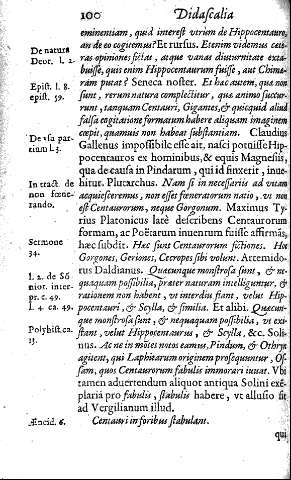 100 Didascalia
eminentiam, quid interest vtrum de Hippocentauro,
an de eo cogitemus? Et rursus. Etenim videmus cæte-
ras opiniones fictas, atque vanas diuturnitate exta-
buisse, quis enim Hippocentaurum fuisse, aut Chimæ-
ram putat? Seneca noster. Et hæc autem, quæ non
sunt, rerum natura complectitur, quæ animo succur-
runt, tanquam Centauri, Gigantes, & quicquid aliud
falsa cogitatione formatum habere aliquam imaginem
cœpit, quamuis non habeat substantiam. Claudius
Gallenus impossibile esse ait, nasci potuisse Hip-
pocentauros ex hominibus, & equis Magnesiis,
qua de causa in Pindarum, qui id finxerit, inue-
hitur. Plutarchus. Nam si in necessariis ad vitam
acquiesceremus, non esset feneratorum natio, vt non
est Centaurorum, neque Gorgonum. Maximus Ty-
rius Platonicus latè describens Centaurorum
formam, ac Poëtarum inuentum fuisse affirmās,
hæc subdit. Hæ sunt Centaurorum fictiones. Hoc
Gorgones, Geriones, Cecropes sibi volunt. Artemido-
rus Daldianus. Quæcunque monstrosa sunt, & ne-
quaquam possibilia, præter naturam intelliguntur, &
rationem non habent, vt interdiu fiant, velut Hip-
pocentauri, & Scylla, & similia. Et alibi. Quæcun-
que monstrosa sunt, & nequaquam possibilia, vt exi-
stant, velut Hippocentaurus, & Scylla, &c. Soli-
nus. Ac ne in mōtes notos eamus, Pindum, & Othryn
agitent, qui Laphitarum originem prosequuntur, Os-
sam, quos Centaurorum fabulis immorari iuuat. Vbi
tamen aduertendum aliquot antiqua Solini exē-
plaria pro fabulis, stabulis habere, vt allusio sit
ad Vergilianum illud.
Centauri in foribus stabulant.
qui
De natura
Deor. l. 2.
Epist. l. 8.
epist. 59.
De vsu par-
tium l. 3.
In tract. de
non fœne-
rando.
Sermone
34.
l. 2. de Sō
nior. inter-
pr. c. 49.
l. 4. ca. 49.
Polyhist. ca.
13.
Æneid. 6.